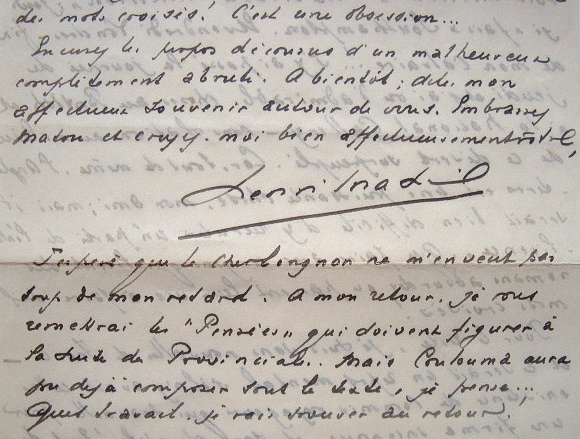 des mots croisés! C'est une obsession...
Excusez les propos décousus d'un malheureux
complètement abruti. A bientôt; dites mon
affectueux souvenir autour de vous. Embrassez
Malou et croyez-moi bien affectueusement vôtre,
Henri
J'espère que le ne m'en veut pas
trop de mon retard. A mon retour, je vous
remettrai les "Pensées" qui doivent figurer à
la suite des Provinciales. Mais Coulouma aura
pu déjà composer tout le texte, je pense...
Quel travail je vais trouver au retour!